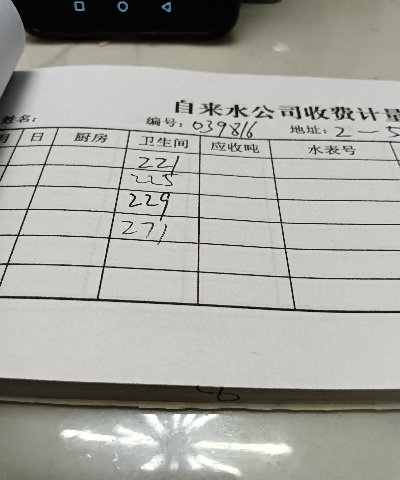 自来水公司收费计量
姓名: 编号: 039816 地址: 2-5
月 日 厨房 卫生间 应收吨 水表号
221
225
229
271